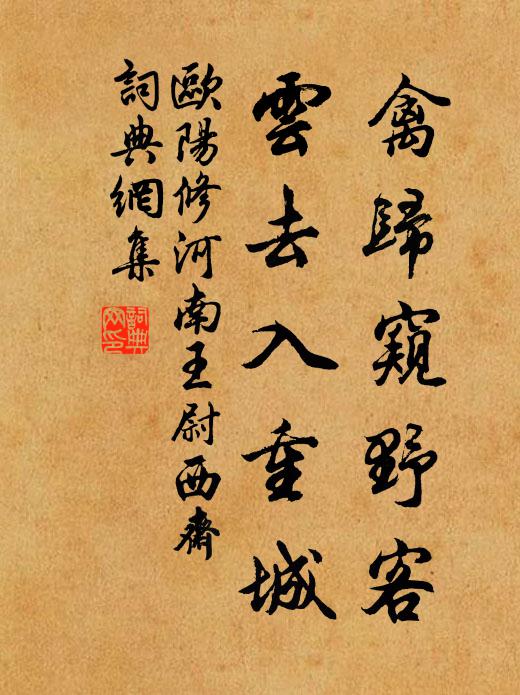 禽歸窺野客
雲去入重城
歐陽修河南王尉西齋
詞典網集
詞典網印